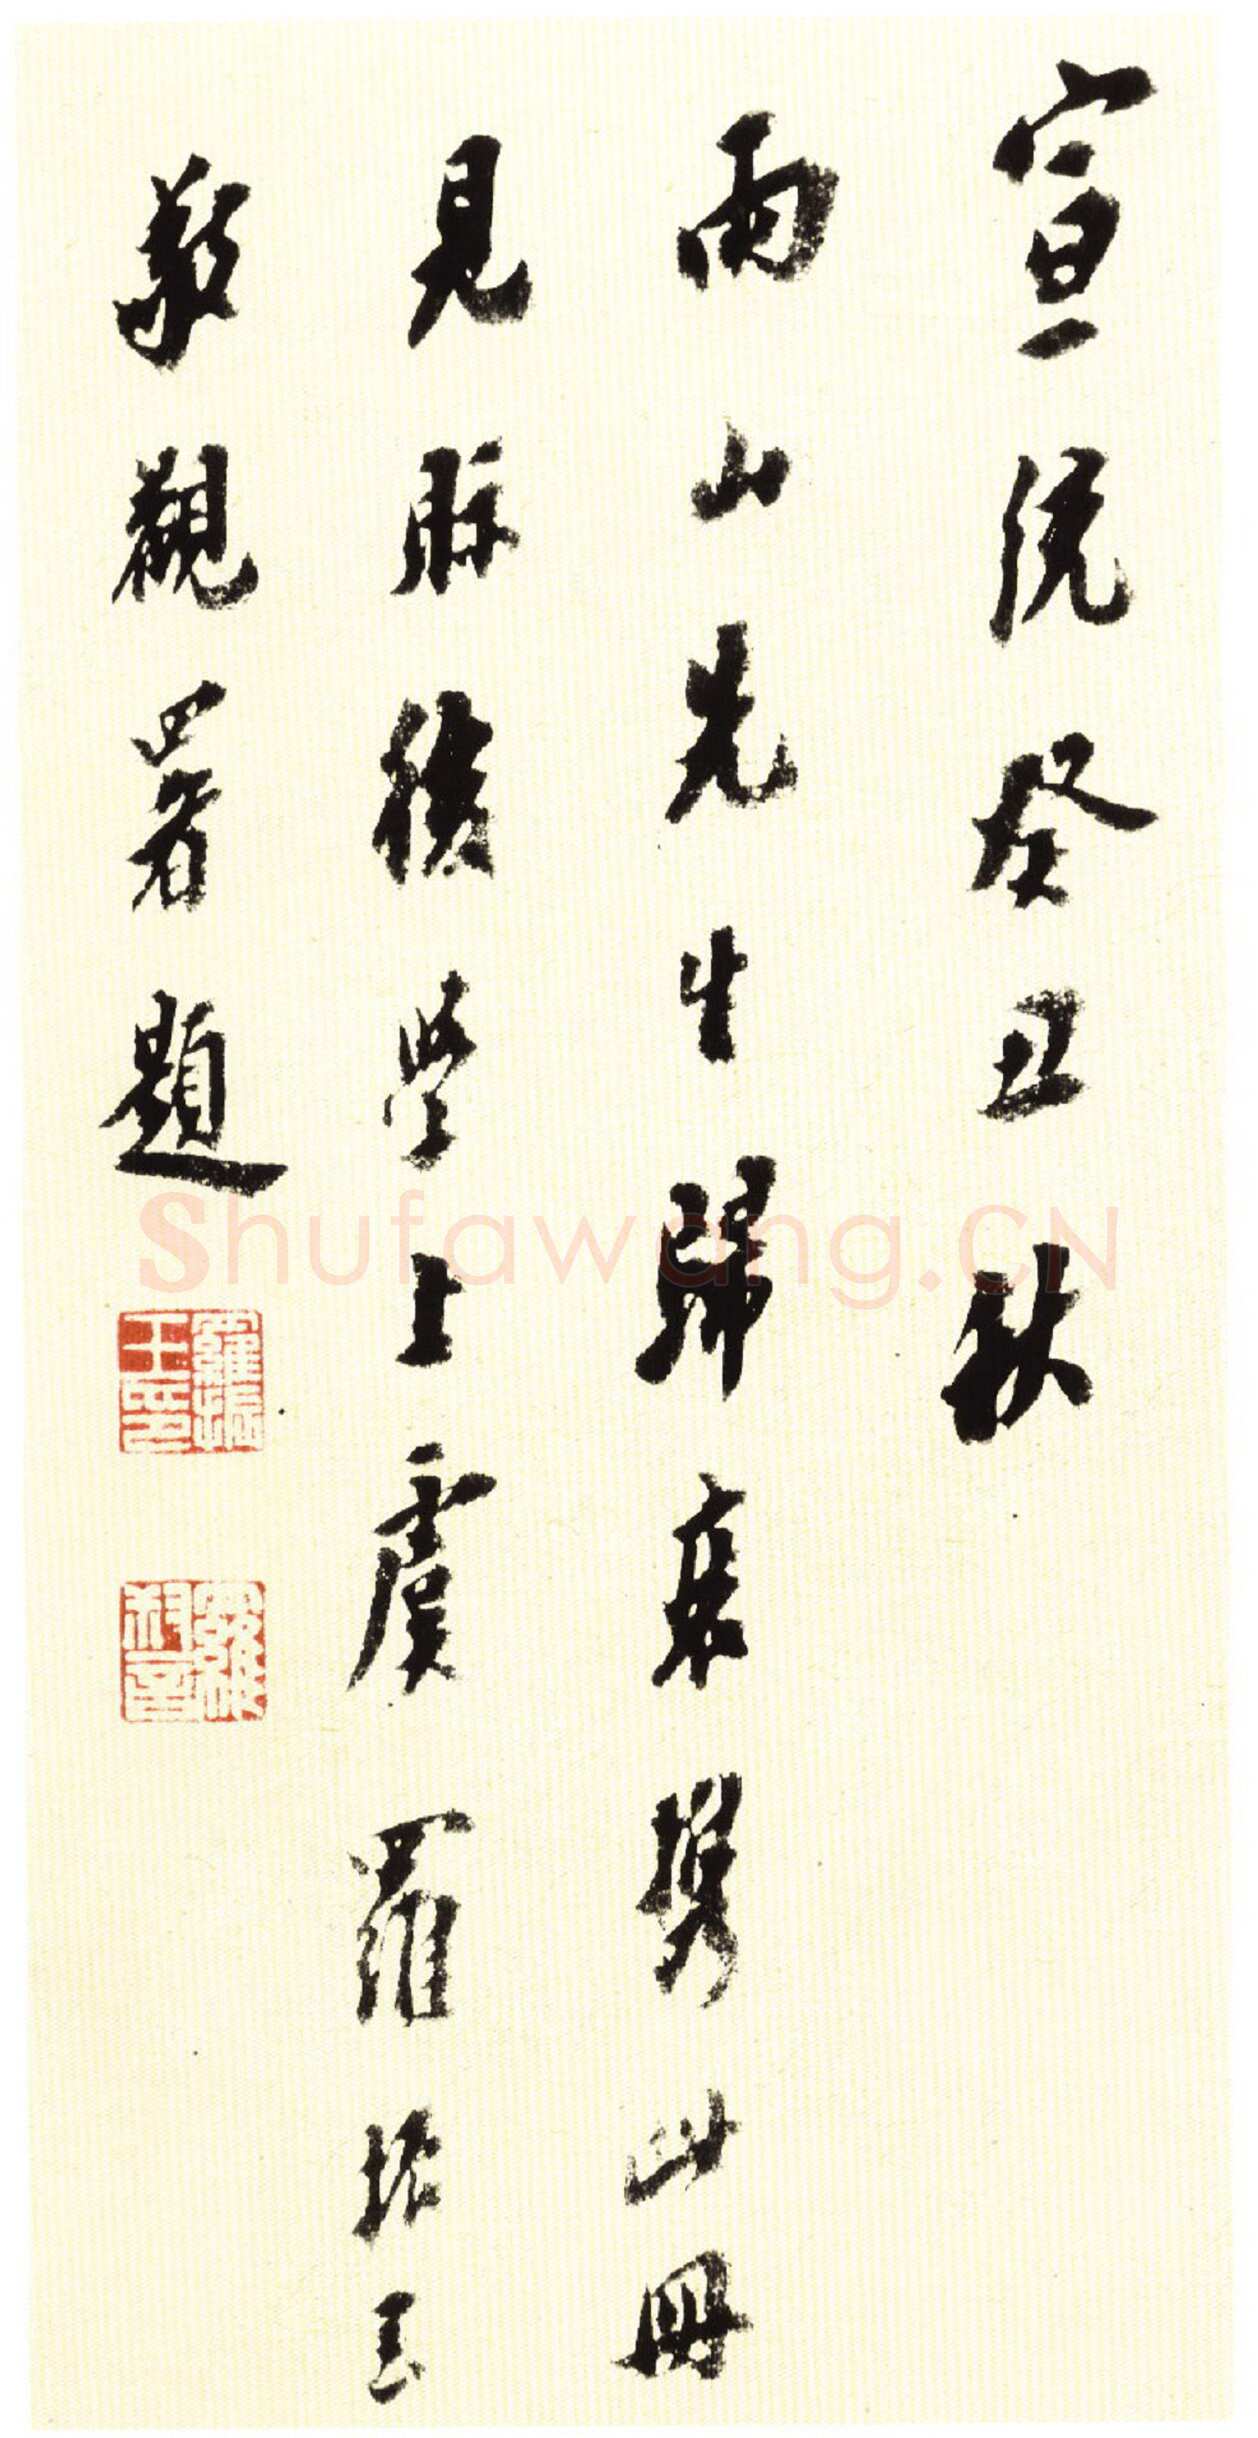 宣統癸丑秋
雨山先生歸來携此冊
見眎後學上虞羅振玉
敬觀署題
羅振玉印
Shufawang.CN